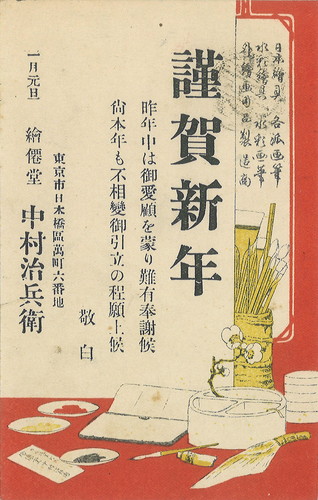 日本繪具 各流画筆
水彩繪具 水彩画筆
外繪画用品製造商
謹賀新年
昨年中は御愛顧を蒙り難有奉謝候
尙本年も不相變御引立の程願上候
敬白
東京市日本橋區萬町六番地
一月元旦 繪僊堂 中村治兵衛